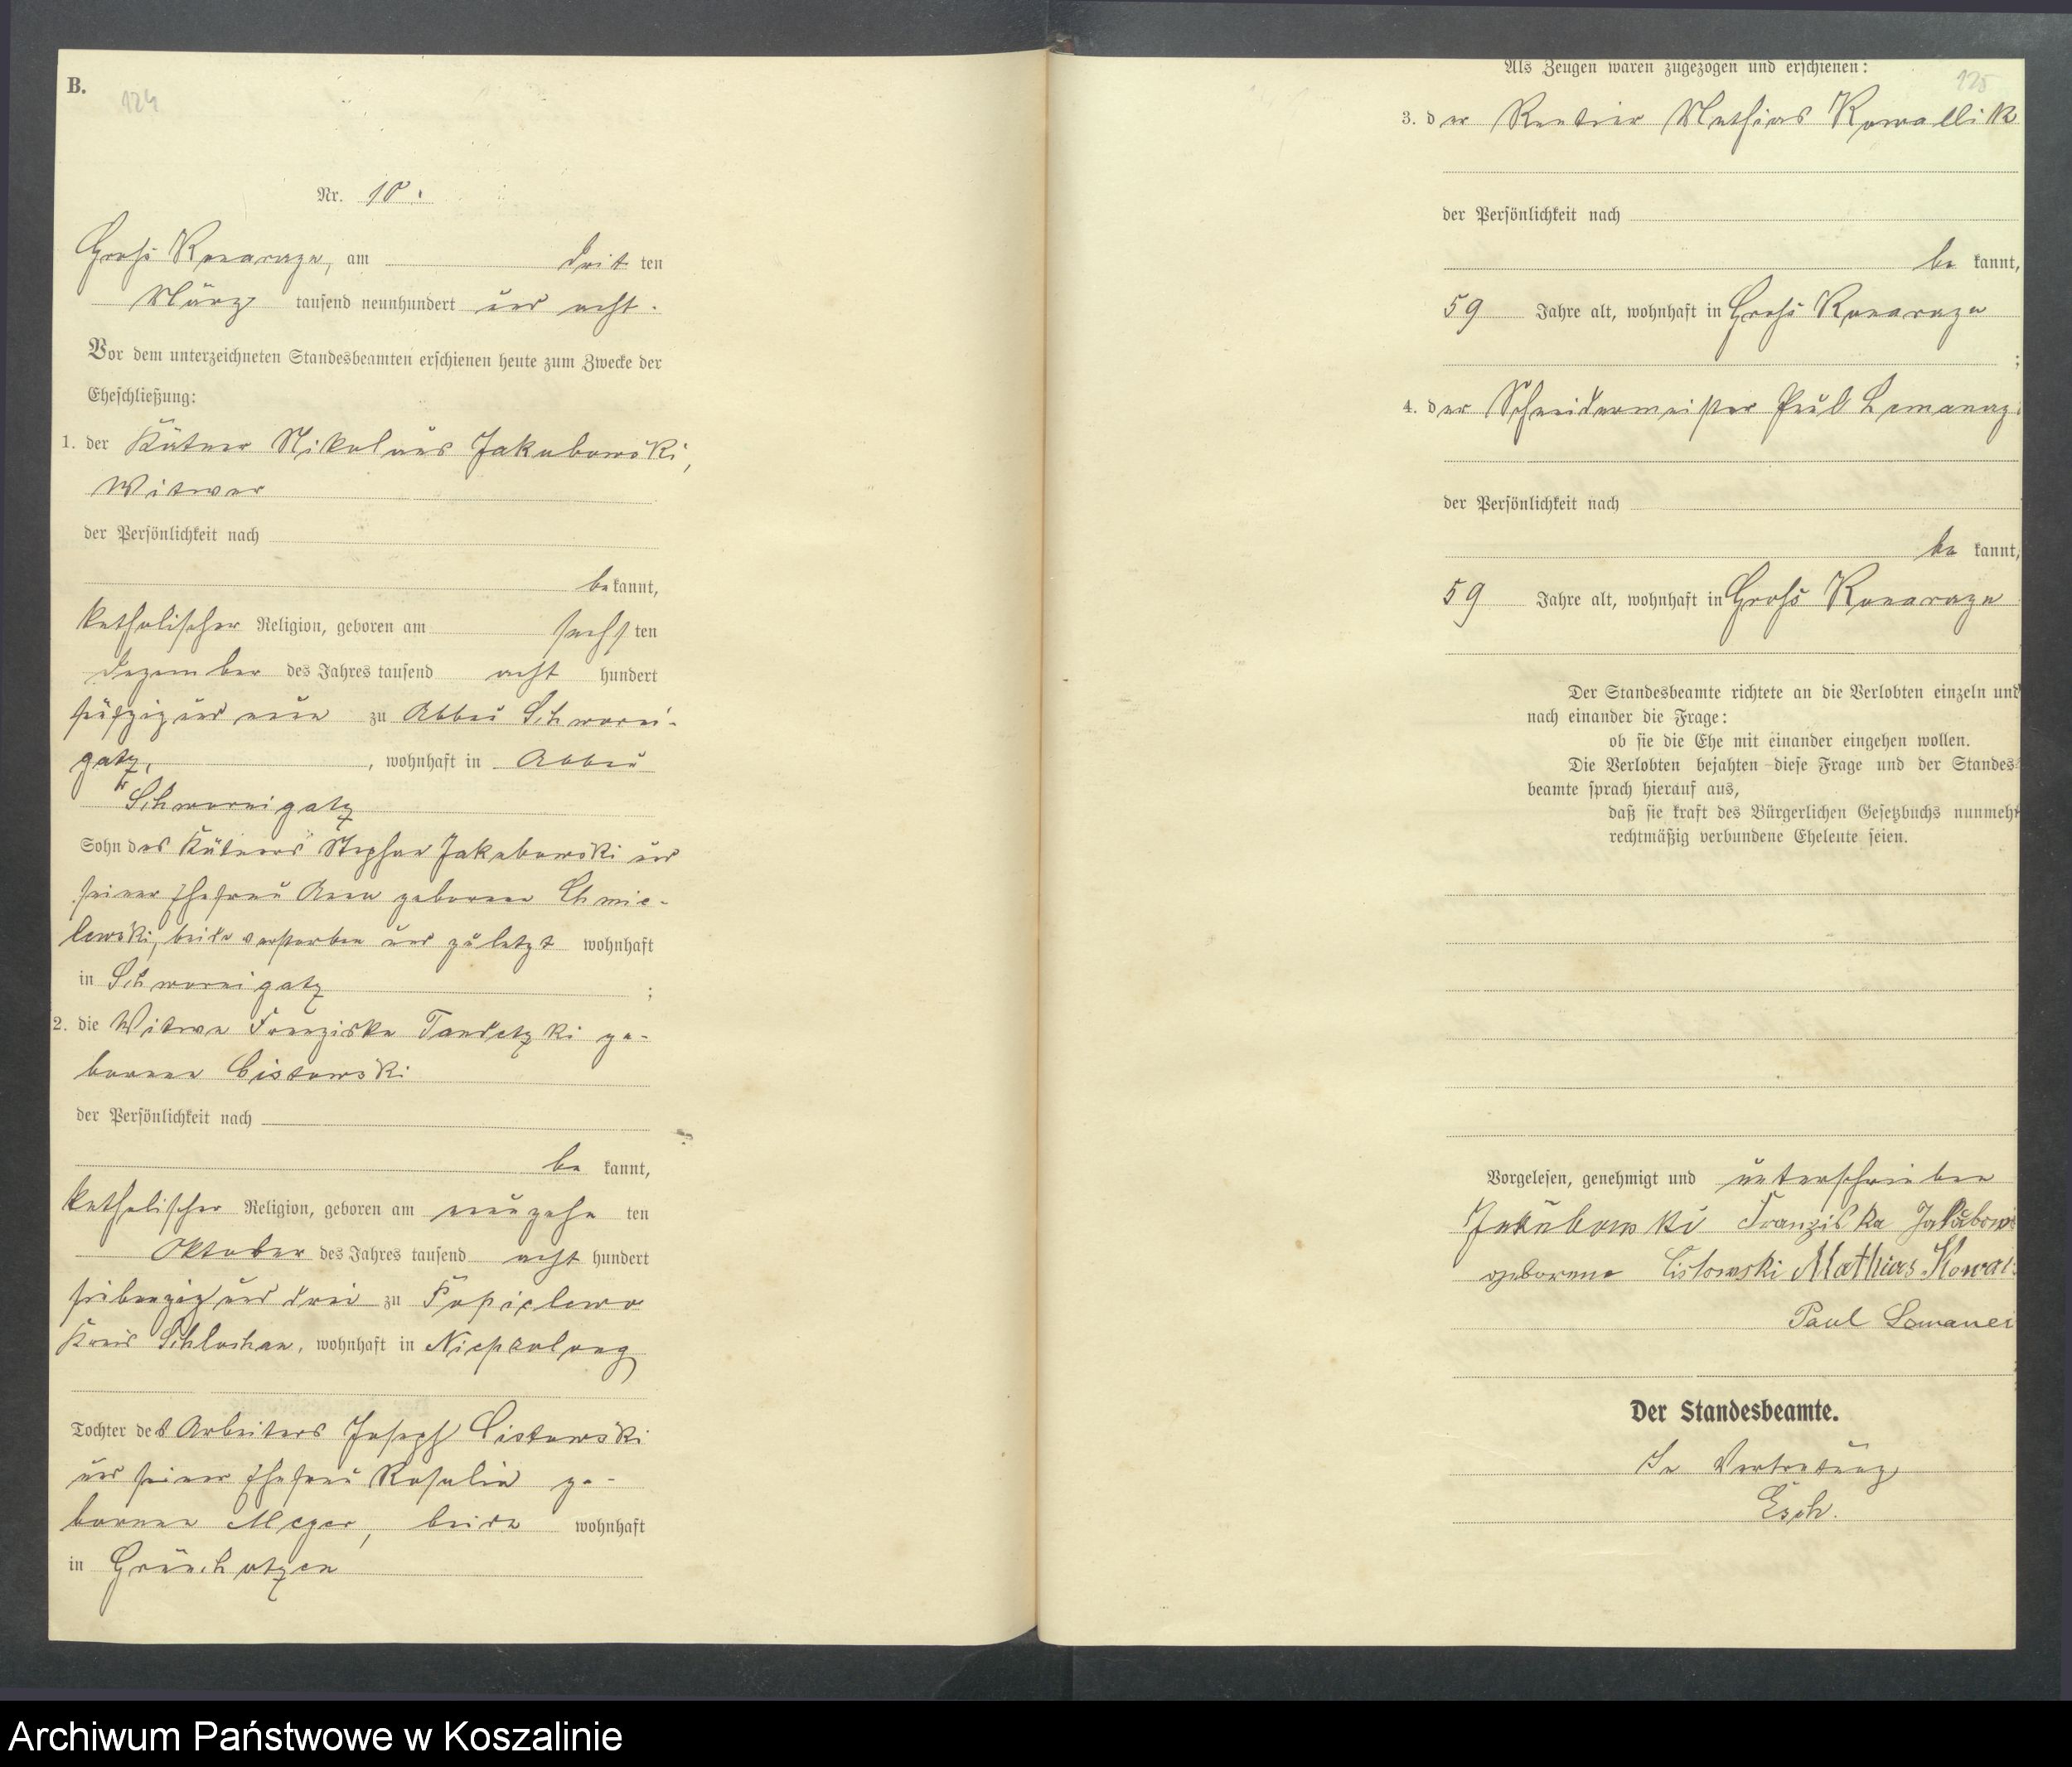 B.
124
Nr. 10.
Groß Konarzyn, am dritten
März tausend neunhundert und acht.
Vor dem unterzeichneten Standesbeamten erschienen heute zum Zwecke der
Eheschließung:
1. der Kätner Nikolaus Jakubowski,
Witwer
der Persönlichkeit nach
bekannt,
katholischer Religion, geboren am sechsten
Dezember des Jahres tausend acht hundert
fünfzig und neun zu Abbau Schwornigatz, wohnhaft in Abbau
Schwornigatz
Sohn des Kätners Stephan Jakubowski und
seiner Ehefrau Anna geborenen Chmie-
lewski, beide verstorben und zuletzt wohnhaft
in Schwornigatz ;
2. die Witwe Franziska Tandetzki ge-
borene Cistowski
der Persönlichkeit nach
be kannt,
katholischer Religion, geboren am neunzehn ten
Oktober des Jahres tausend acht hundert
siebenzig und drei zu
Kreis Schlochau, wohnhaft in
Tochter des Arbeiters Joseph Cistowski
und seiner Ehefrau Rosalie ge-
borenen Meger, beide wohnhaft
in Grünchotzen
Als Zeugen waren zugezogen und erschienen:
125
3. der Rentier Mathias Kowallik
der Persönlichkeit nach
be kannt,
59 Jahre alt, wohnhaft in Groß Konarzyn
;
4. der Schneidermeister Paul
der Persönlichkeit nach
be kannt,
59 Jahre alt, wohnhaft in Groß Konarzyn
Der Standesbeamte richtete an die Verlobten einzeln und
nach einander die Frage:
ob sie die Ehe mit einander eingehen wollen.
Die Verlobten bejahten diese Frage und der Standes
beamte sprach hierauf aus,
daß sie kraft des Bürgerlichen Gesetzbuchs nunmehr
rechtmäßig verbundene Eheleute seien.
Vorgelesen, genehmigt und unterschrieben
Jakubowski Franziska Jakubow
geborene Cistowski Mathias Kowal
Paul
Der Standesbeamte.
In Vertretung
Esch.
Archiwum Państwowe w Koszalinie